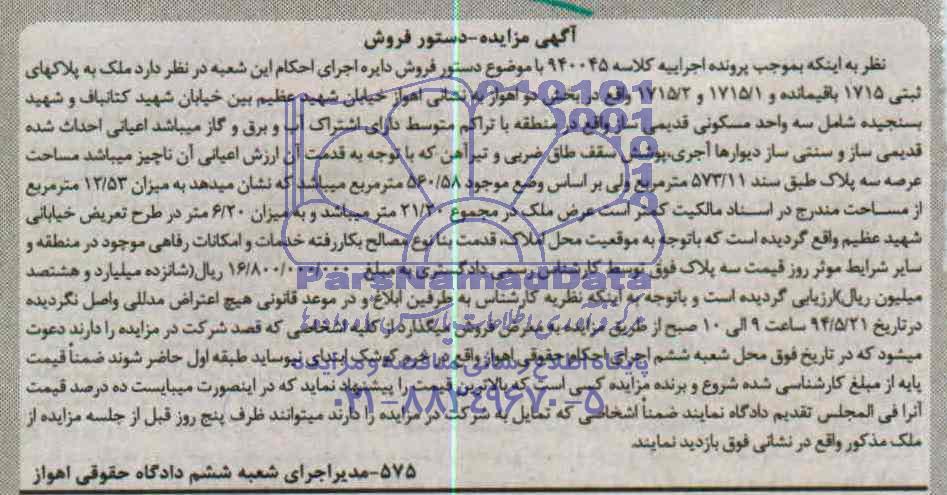 آگهی مزایده-دستور فروش
نظر به اینکه بموجب پرونده اجراییه کلاسه ۹۴۰۰۴۵ با موضوع دستور فروش دایره اجرای احکام این شعبه در نظر دارد ملک به پلاکهای
ثبتی ۱۷۱۵ باقیمانده و ۱۷۱۵/۱ و ۱۷۱۵/۲ واقع در بخش دو اهواز به نشانی اهواز خیابان شهید عظیم بین خیابان شهید کتانباف و شهید
بسنجیده شامل سه واحد مسکونی قدیمی ساز واقع در منطقه با تراکم متوسط دارای اشتراک آب و برق و گاز میباشد اعیانی احداث شده
قدیمی ساز و سنتی ساز دیوارها آجری،پوشش سقف طاق ضربی و تیرآهن که با توجه به قدمت آن ارزش اعیانی آن ناچیز میباشد مساحت
عرصه سه پلاک طبق سند ۵۷۳/۱۱ مترمربع ولی بر اساس وضع موجود ۵۶۰/۵۸ مترمربع میباشد که نشان میدهد به میزان ۱۲/۵۳ مترمربع
از مساحت مندرج در اسناد مالکیت کمتر است عرض ملک در مجموع ۲۱/۲۰ متر میباشد و به میزان ۶/۲۰ متر در طرح تعریض خیابانی
شهید عظیم واقع گردیده است که باتوجه به موقعیت محل املاک، قدمت بنا نوع مصالح بکاررفته خدمات و امکانات رفاهی موجود در منطقه و
سایر شرایط موثر روز قیمت سه پلاک فوق توسط کارشناس رسمی دادگستری به مبلغ ۱۶/۸۰۰/۰۰۰/۰۰۰ ریال(شانزده میلیارد و هشتصد
میلیون ریال)ارزیابی گردیده است و باتوجه به اینکه نظریه کارشناس به طرفین ابلاغ و در موعد قانونی هیچ اعتراض مدللی واصل نگردیده
درتاریخ ۹۴/۵/۲۱ ساعت ۹ الی ۱۰ صبح از طریق مزایده به معرض فروش میگذارد از کلیه اشخاصی که قصد شرکت در مزایده را دارند دعوت
میشود که در تاریخ فوق محل شعبه ششم اجرای احکام حقوقی اهواز واقع در خرم کوشک ابتدای نیوساید طبقه اول حاضر شوند ضمناً قیمت
پایه از مبلغ کارشناسی شده شروع و برنده مزایده کسی است که بالاترین قیمت را پیشنهاد نماید که در اینصورت میبایست ده درصد قیمت
آنرا فی المجلس تقدیم دادگاه نمایند ضمناً اشخاصی که تمایل به شرکت در مزایده را دارند میتوانند ظرف پنج روز قبل از جلسه مزایده از
ملک مذکور واقع در نشانی فوق بازدید نمایند.
۵۷۵-مدیراجرای شعبه ششم دادگاه حقوقی اهواز
ParsNamadData
پایگاه اطلاع رسانی مناقصه و مزایده
۰۲۱-۸۸۳۴۹۶۷۰-۵